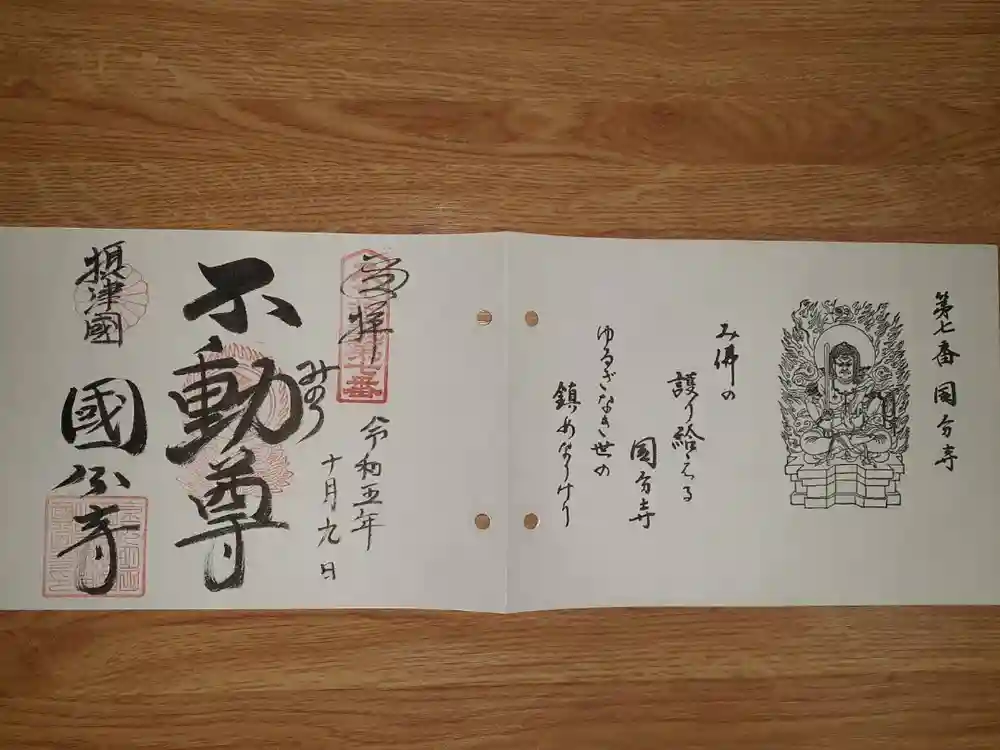 第七番 国分寺
み佛の
護り給へる
国分寺
ゆるぎなき世の
鎮めなりけり
奉拝
第七番
令和五年
十月九日
みのり
不動尊
摂津國
國分寺